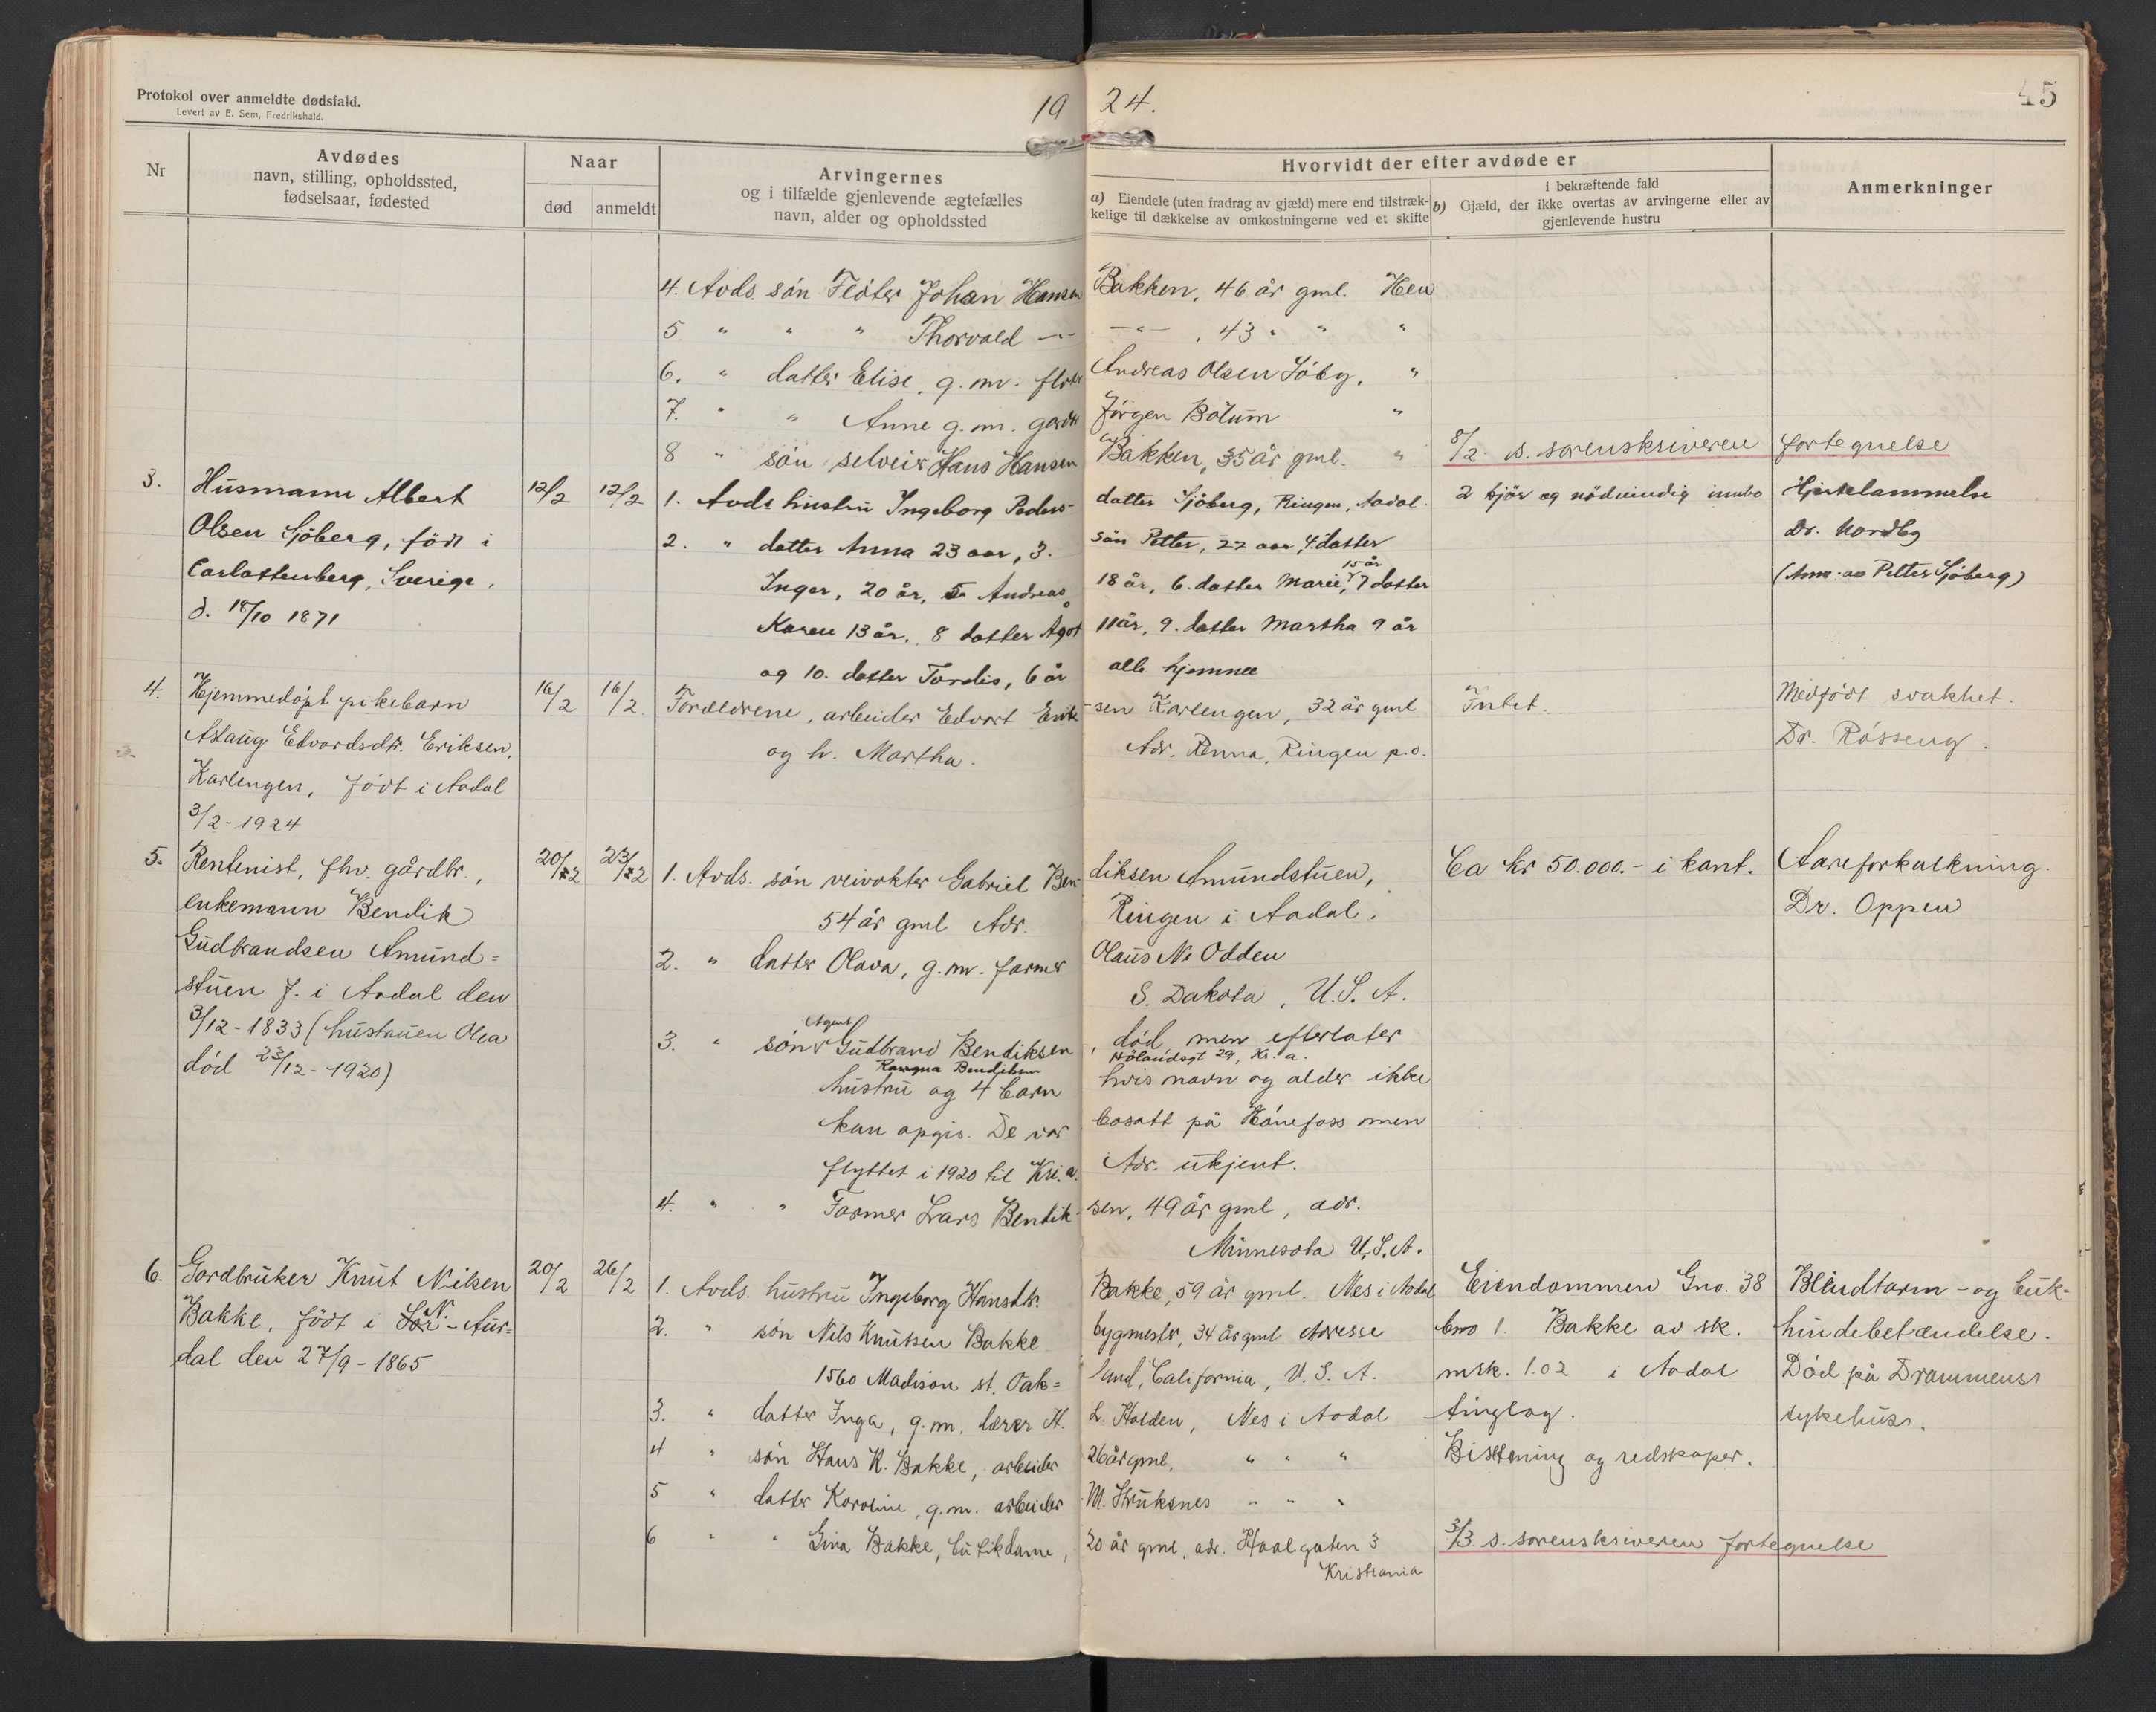 Protokol over anmeldte dødsfald.
Levert av E. Sem, Fredrikshald.
19 24.
45
Nr
Avdødes
navn, stilling, opholdssted,
fødselsaar, fødested
Naar
død
anmeldt
Arvingernes
og i tilfælde gjenlevende ægtefælles
navn, alder og opholdssted
Hvorvidt der efter avdøde er
a) Eiendele (uten fradrag av gjæld) mere end tilstræk-
kelige til dækkelse av omkostningerne ved et skifte
i bekræftende fald
b) Gjæld, der ikke overtas av arvingerne eller av
gjenlevende hustru
Anmerkninger
4. Avds. sön Flöter Johan Hansen Bakken, 46 år gml. Hen
5 " " " Thorvald -"- -"- , 43 " " "
6. " datter Elise, g. m. fløter Andreas Olsen Söby, "
7. " " Anne g. m. gardbr Jörgen Bölum "
8 " sön selveier Hans Hansen Bakken, 35 år gml. " 8/2 s. sorenskriveren fortegnelse
3. Husmann Albert
Olsen Sjöberg, födt i
Carlottenberg, Sverige.
d. 18/10 1871
12/2 12/2
1. Avds hustru Ingeborg Peders- datter Sjöberg, Ringen, Aadal.
2. " datter Anna 23 aar, 3. sön Petter, 22 aar, 4. datter
Inger, 20 år, 5 Andreas 18 år, 6. datter Marie, 15 år 7 datter
Karen 13 år., 8 datter Agot 11 år, 9. datter Martha 9 år
og 10. datter Tordis, 6 år alle hjemme
2 kjör og nödvendig innbo
Hjertelammelse
Dr. Nordby
(Anm. av Petter Sjöberg)
4. Hjemmedöpt pikebarn
Aslaug Edvardsdtr. Eriksen,
Karlengen, födt i Aadal
3/2 - 1924
16/2 16/2
Foreldrene, arbeider Edvart Erik- sen Karlengen, 32 år gml
og h. Martha. Adr. Renna, Ringen p.o.
Intet.
Medfödt svakhet.
Dr. Rösseng.
5. Rentenist, fhv. gårdbr.,
enkemann Bendik
Gudbrandsen Amund=
stuen f. i Aadal den
3/12 - 1833 (hustruen Olea
död 23/12 - 1920)
20/2 23/2
1. Avds. sön veivokter Gabriel Ben- diksen Amundstuen,
54 år gml Adr. Ringen i Aadal.
2. " datter Olava, g. m. farmer Olaus N. Odden
S. Dakota, U.S.A.
3. " sön Agent Gudbrand Bendiksen, död, men efterlater
Ragna Bendiksen Nölandsgt 29, Kr.a.
hustru og 4 barn hvis navn og alder ikke
kan opgis. De var bosatt på Hönefoss men
flyttet i 1920 til Kri.a. Adr. ukjent.
4. " " Farmer Lars Bendik- sen, 49 år gml, adr.
Minnesota U.S.A.
Ca kr 50.000.- i kont.
Aareforkalkning.
Dr. Oppen
6. Gardbruker Knut Nilsen
Bakke, födt i N.-Aur-
dal den 27/9 - 1865
20/2 26/2
1. Avds. hustru Ingeborg Hansdtr. Bakke, 59 år gml. Nes i Aadal
2. " sön Nils Knutsen Bakke bygmestr, 34 år gml Adresse
1560 Madison st. Oak= land, California, U.S.A.
3. " datter Inga, g. m. lærer H. L. Halden, Nes i Aadal
4 " sön Hans K. Bakke, arbeider 26 år gml, " " "
5 " datter Karoline, g. m. arbeider M. Struksnes " " "
6 " " Gina Bakke, butikdame, 20 år gml, adr. Waalgaten 3
Kristiania
Eiendommen Gno. 38
bno 1. Bakke av sk.
mrk. 1.02 i Aadal
tinglag.
Besetning og redskaper.
3/3. s. sorenskriveren fortegnelse
Blindtarm - og buk-
hindebetændelse.
Död på Drammens
sykehus.